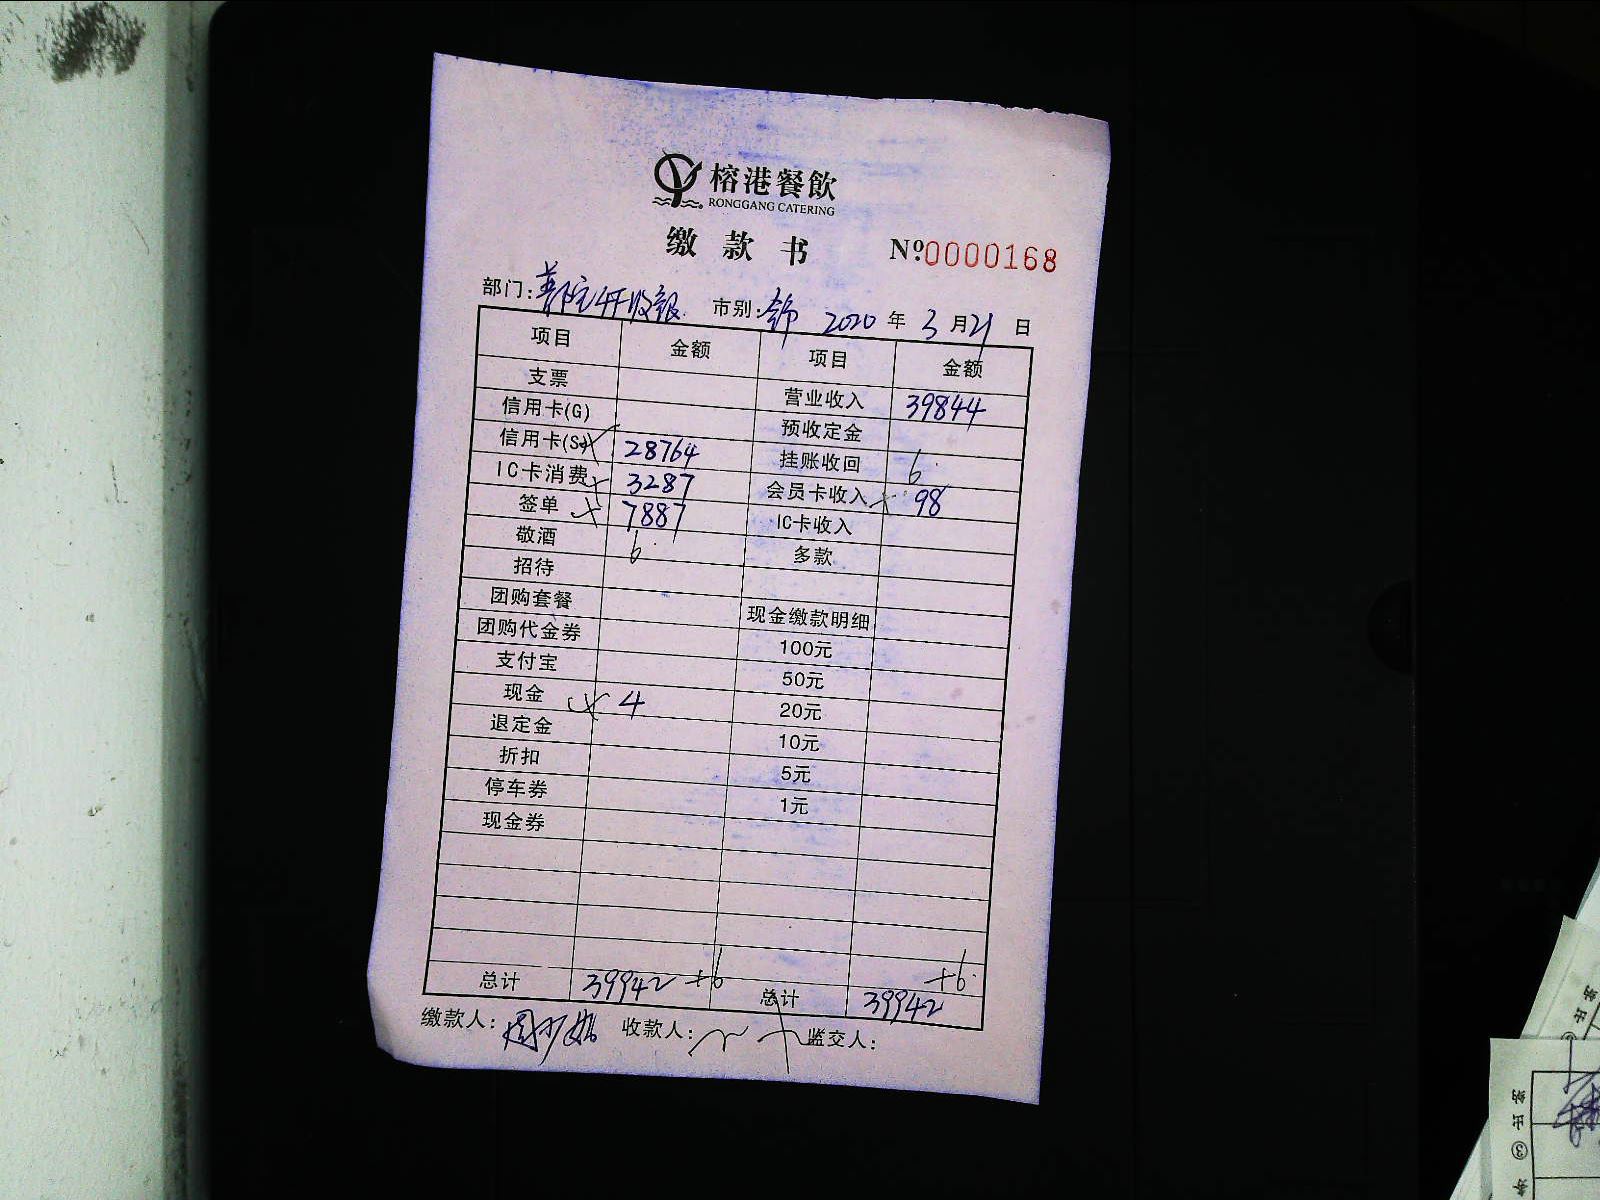 榕港餐飲
RONGGANG CATERING
缴款书 Nº0000168
部门: 市别: 2020年3月21日
项目 金额 项目 金额
支票 营业收入 39844
信用卡(G) 预收定金
信用卡(S) 28764 挂账收回 6
IC卡消费 3287 会员卡收入 98
签单 7887 IC卡收入
敬酒 6 多款
招待
团购套餐 现金缴款明细
团购代金券 100元
支付宝 50元
现金 4 20元
退定金 10元
折扣 5元
停车券 1元
现金券
总计 39942 +6 总计 39942 +6
缴款人: 收款人: 监交人: